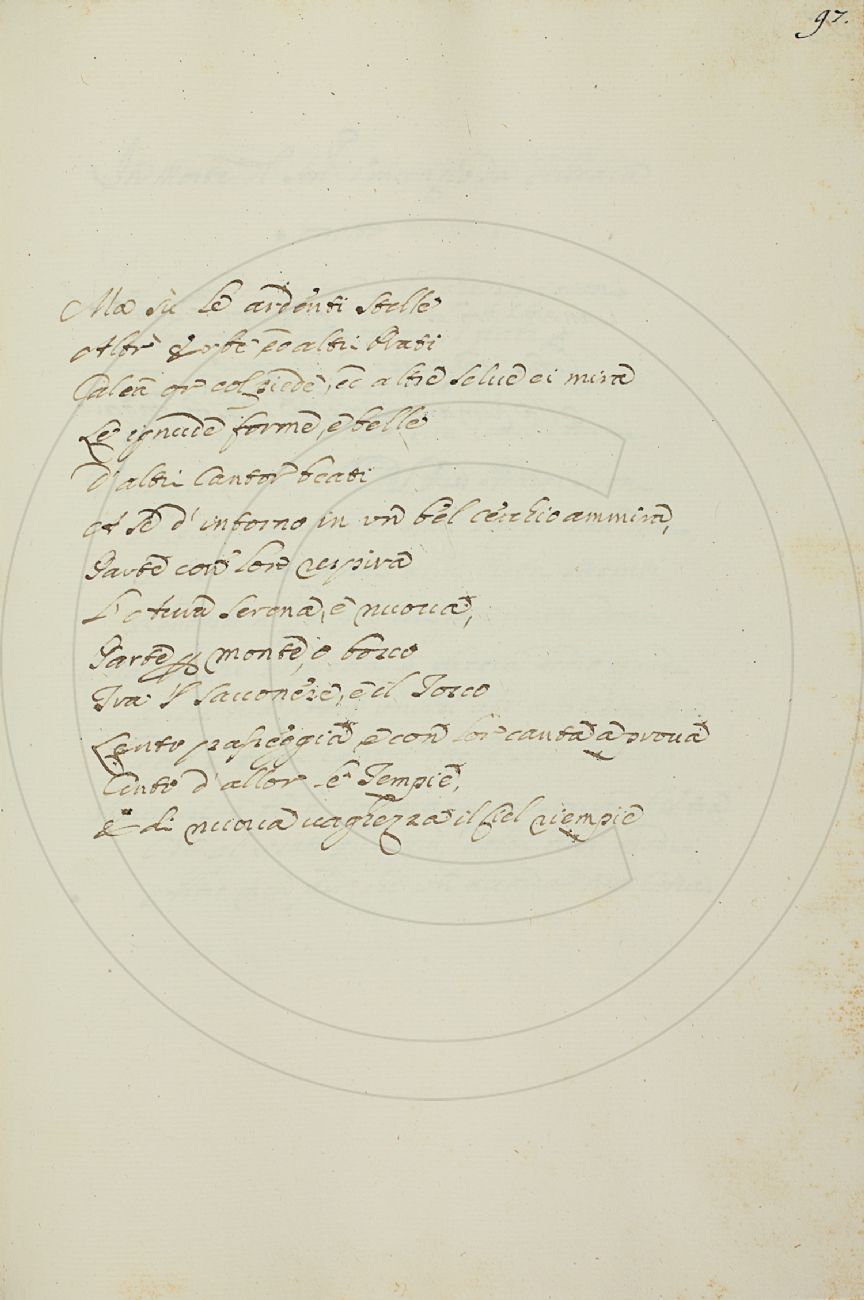 97.
Ma sù le ardenti stelle
Altr' Erbe ed altri Prati
Calca or col piede, ed altre selve ei mira
Le ignude forme, e belle
D'altri Cantor beati
A se d'intorno in un bel cerchio ammira,
Parte con loro respira
L'Aura serena, e nuova,
Parte per monte, o bosco
Tra'l Savonese, e il Tosco
Lento passeggia e con lor canta a prova
Cinto d'allor le Tempie,
E di nuova vaghezza il Ciel riempie